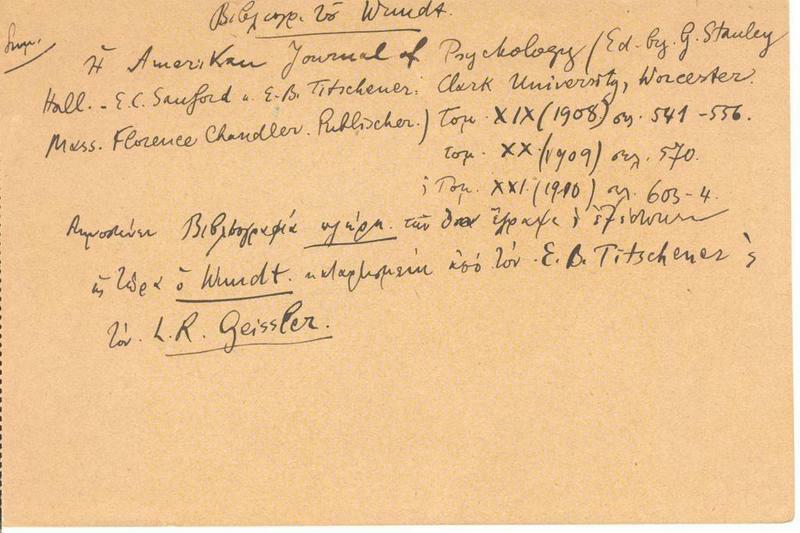 Βιβλιογρ. τοῦ Wundt.
σημ.
Ἡ Amerikan Journal of Psychology (Ed. by. G. Stanley
Hall. - E.C. Sanford u. E.B. Titschener: Clark University, Worcester.
Mass. Florence Chandler. Publischer.) Τομ. XIX (1908) σελ. 541-556.
τομ. XX (1909) σελ. 570.
Τομ. XXI (1910) σελ. 603-4.
Δημοσιεύει Βιβλιογραφία πλήρη τῶν ὅσα ἔγραψε
ὡς τώρα ὁ Wundt. ἀπό τόν E.B. Titschener
τόν L.R. Geissler.